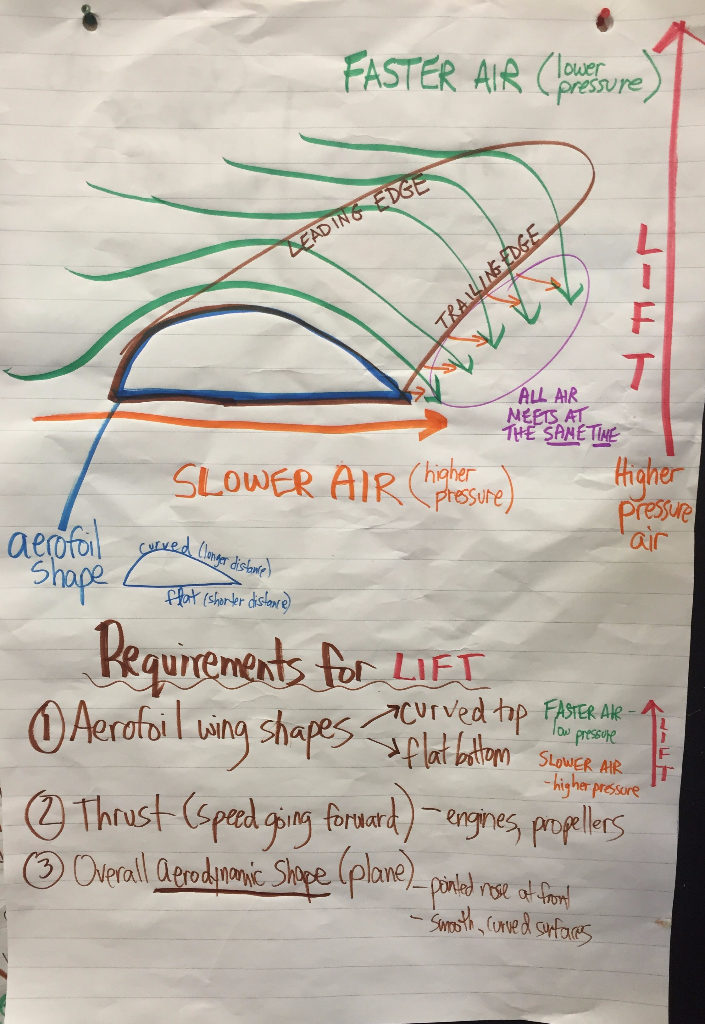 FASTER AIR (lower pressure)
LEADING EDGE
TRAILING EDGE
LIFT
ALL AIR
MEETS AT
THE SAME TIME
SLOWER AIR (higher pressure)
Higher
pressure
air
aerofoil
shape
curved (longer distance)
flat (shorter distance)
Requirements for LIFT
① Aerofoil wing shapes → curved top
→ flat bottom
FASTER AIR -
low pressure
SLOWER AIR
- higher pressure
LIFT
② Thrust (speed going forward) - engines, propellers
③ Overall Aerodynamic Shape (plane) - pointed nose at front
- smooth, curved surfaces